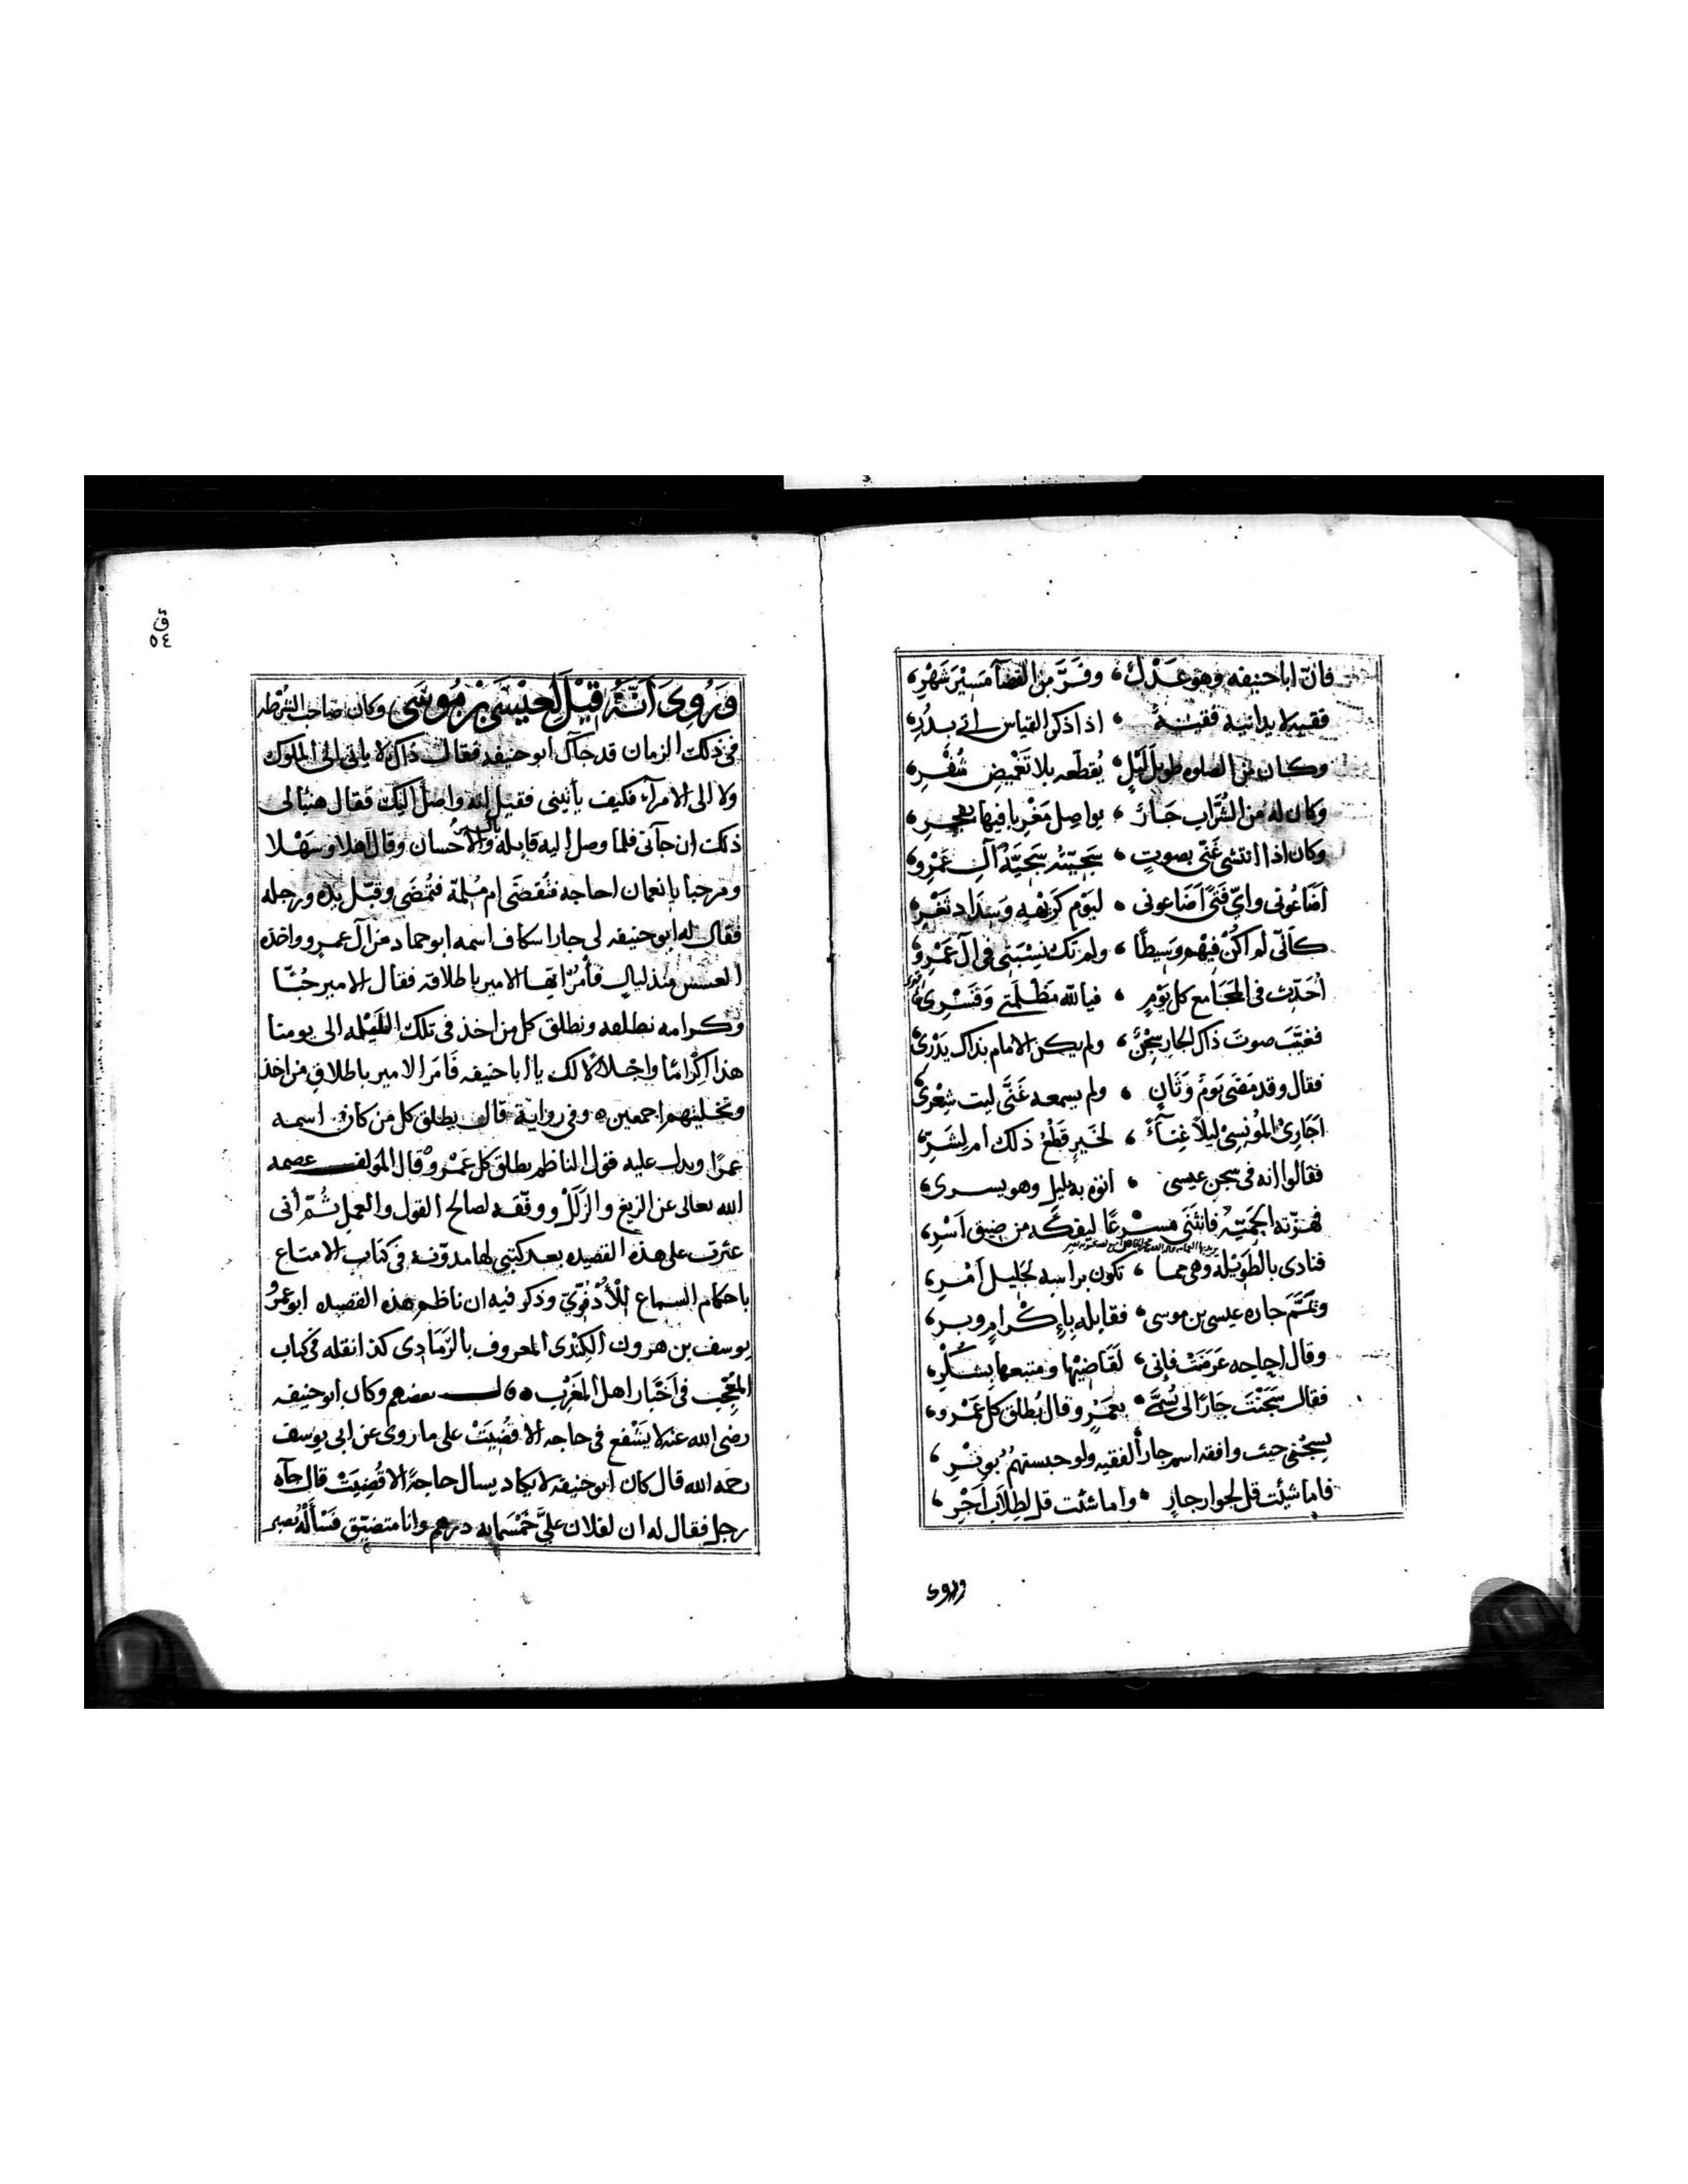 فان ابا حنيفه وهو عَدْلٌ، وفَرَّ من القضآ مَسِيْرَ شَهْرِ،
فقيه لا يدانيه فقيهٌ، اذا ذكر القياس اتى بدُرِّ،
وكان من الصلوه طويل لَيْلٍ، يُقطّعه بلا تَغْميض شُفْرِ،
وكان له من الشُّراب جَارٌ، يواصِل مَغْربا فيها بفجرِ،
وكان اذا انتشى غَنّى بصوتٍ، بسجنه سَجيَّةُ آل عَمْرِو،
اَضَاعُونى وايّ فَتًى اَضَاعونى، ليَوْم كَرِيْهةٍ وَسِدَادِ ثَغْرِ،
كاَنّى لم اكُنْ فِيْهم وَسِيطًا، ولم تَكُ نِسْبَتى فى آل عَمْرِو،
اُجَرَّرُ فى الجَوَامع كل يَوْمٍ، فيا لله مَظْلَمتي وَقَسْرِىْ
فغيَّبَ صوتَ ذاك الجارِ سِجْنٌ، ولم يكن الامام بذاك يَدْرِىْ
فقال وقد مَضَى يَوْمٌ وَثَانٍ، ولم يسمعه غَنَّى ليت شِعْرِىْ
اَجَارِىْ المُونِسِىْ ليلاً غِنآءً، لخَيرٍ قَطْعُ ذلك ام لِشَرِّ،
فقالوا انه فى سجنِ عيسى، اتوه به بليل وهو يسرى،
فنادى بالطَوِيْله وهى مما، تكون براسه لجليل اَمْرِ،
ويَمَّمَ جاره عيسى بن موسى، فقابله بِإِكْرامٍ وبرِ،
وقال احاجه عَرَضَتْ فإنى، لَقَاضِيْها ومتبعها بِشُكْرِ،
فقال سَجَنْتَ جَارًا لى يُسَمَّى، بعَمْرٍو قال يُطلق كل عَمْرِو،
بسجْنى حيث وافقه اسم جار الفقيه ولو حبستهمُ بوِتْرِ،
فاما شئت قل لجوار جارٍ، واما شئت قل لِطِلاَبِ اَجْرِ،
وروى
ق
٥٤
وَرُوِىَ اَنَّهُ قِيْلَ لِعِيْسَى بْنِ مُوسَى وكان صاحب الشُّرْطه
فى ذلك الزمان قد جآك ابو حنيفه فقال ذاك لا ياتى الى الملوك
ولا الى الامرآء فكيف يأتينى فقيل انه واصل اليك فقال هنيًا لى
ذلك ان جآنى فلما وصل اليه قابله والاحسان وقال اهلا وسَهْلا
ومرحبا يا نعمان احاجه فتُقضَى ام مُلِمّة فتُمضَى وقبّل يده ورجله
فقال له ابو حنيفه لى جار اسكاف اسمه ابو حماد من آل عمرو واخذه
العسس منذ ليال فأمُرْ ايها الامير باطلاقه فقال الامير حُبًّا
وكرامه نطلقه ونطلق كل من اخذ فى تلك اللَيْله الى يومنا
هذا اِكْرَامًا واجْلالاً لك يا ابا حنيفه فَاَمَرَ الامير باطلاق من اخذ
وتخليتهم اجمعين ه وفى رواية قال يطلق كل من كان اسمه
عمرًا ويدل عليه قول الناظم يطلق كل عَمْرٍو قال المولف عصمه
الله تعالى عن الزيغ والزَلَلْ ووفّقه لصالح القول والعمل ثُمّ اَنى
عثرت على هذه القصيده بعد كتبى لها مدوّنه فى كتاب الامتاع
باحكام السماع لِلْاُدْفُوِيّ وذكر فيه ان ناظم هذه القصيده ابو عمرُو
يوسف بن هرون الكِنْدى المعروف بالرَّمَادِى كذا نقله فى كتاب
المُعْجِب فى اَخْبَار اهل المَغْرِب ه قال بعضهم وكان ابو حنيفه
رضى الله عنه لا يَشْفع فى حاجه الا قُضِيَتْ على ما روى عن ابى يوسف
رحمه الله قال كان ابو حنيفة لا يكاد يسال حاجةً الا قُضِيَتْ قال جآه
رجل فقال له ان لفلان عليَّ خَمْسمايه درهم وانا متضيّق فَسْأَلْه يصبر